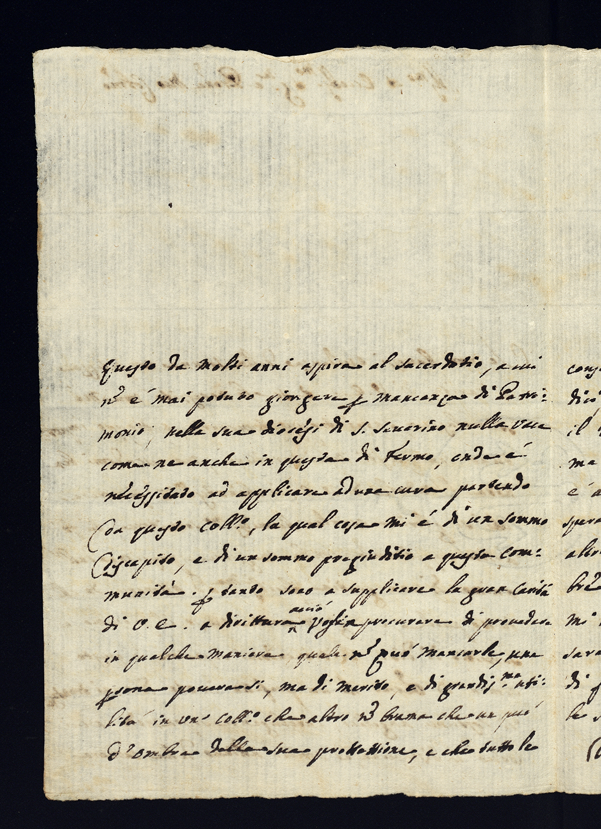 Questo da molti anni aspira al sacerdotio, a cui
nō é mai potuto giongere ꝑ mancanza di Patri-
monio, nella sua diocesi di S. Severino nulla vaca
come ne anche in questa di Fermo, onde é
necessitato ad applicare ad una cura partendo
da questo Coll.o, la qual cosa mi é di un sommo
discapito, e di un sommo pregiuditio a questa com-
munità. ꝑ tanto sono a supplicare la gran carità
di V.E. a dirittura acció voglia procurare di provedere
in qualche maniera quale nō puó mancarle, una
ꝑsona povera si, ma di merito, e di grandiss.ma uti-
lità in un Coll.o che altro nō brama che un pó
d'ombra della sua prottettione, e che tutto le
cons
dici
il
ma
é a
spera
altro
mi
sara
di
le s